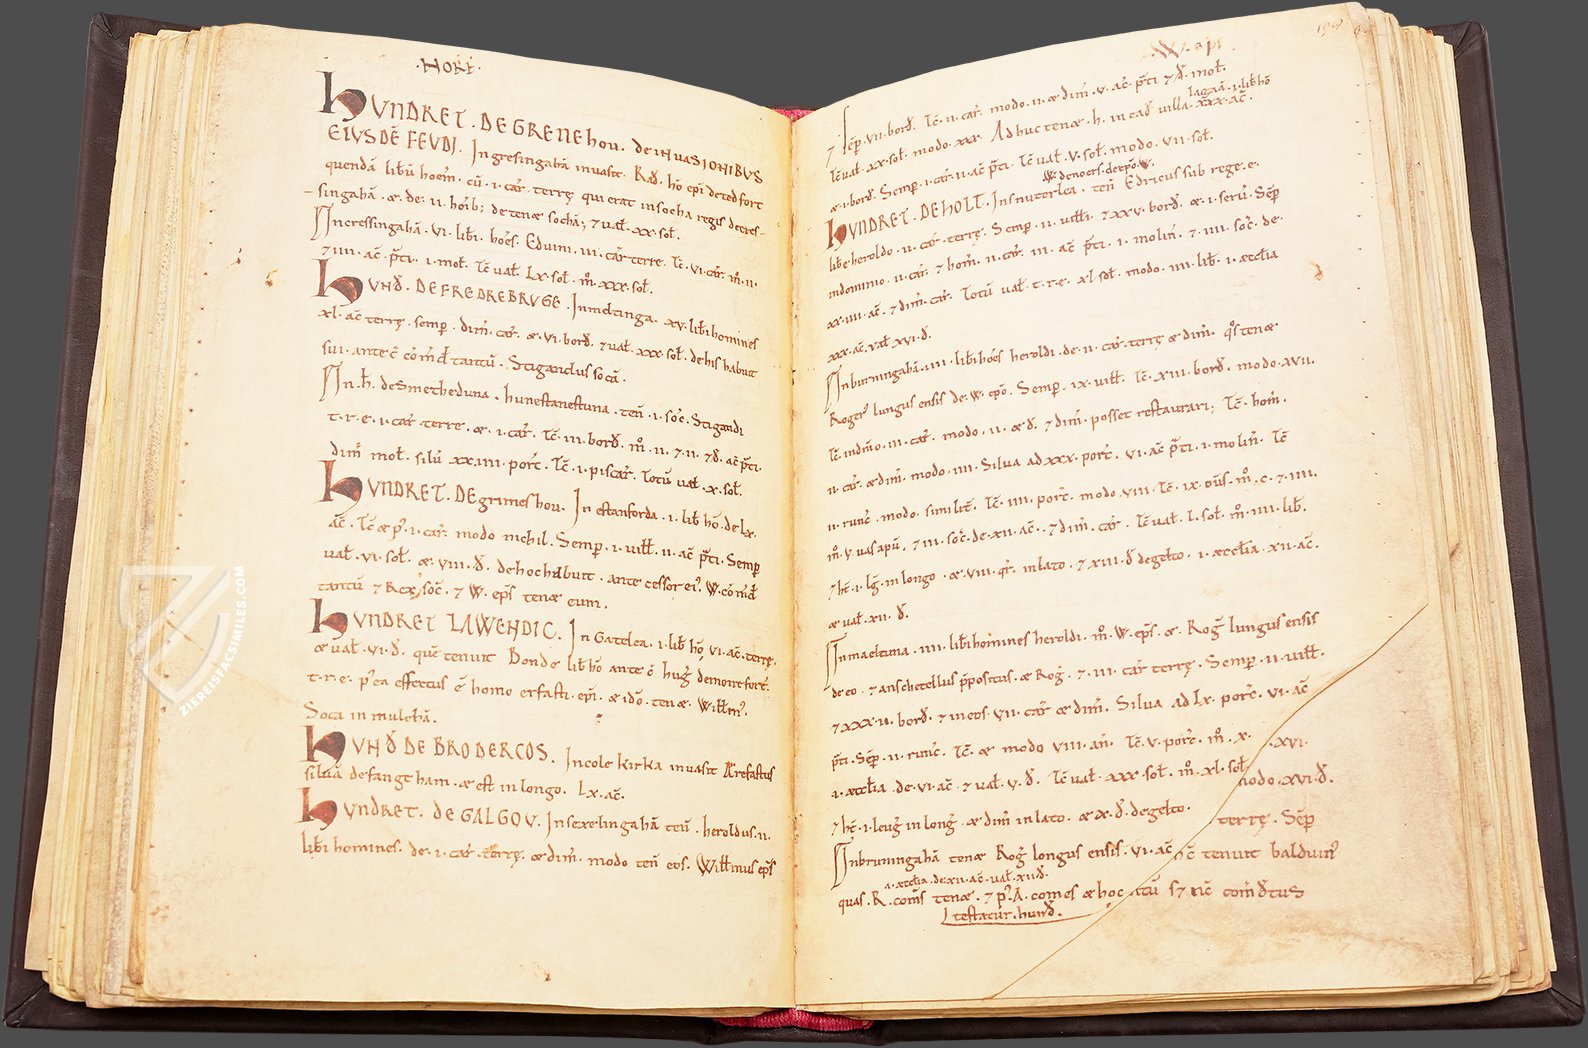 ·NORF·
HUNDRET. DE GRENEhou. de INUASIONIBUS
EIUSDĒ FEUDI. In gresingahā inuasit. Rad. hō epi de tedfort
quendā libū hoem. cū .i. car. terrę qui erat in socha regis de cres-
-singahā. & de .ii. hoib; detenæ sochā; 7 ual .xx. sol.
In cressingahā .vi. libi. hoes. Eduini .iii. car terre. Tc̄ .vi. car. m̊ .ii.
7 iiii. ac̄ p̄ti .i. mol. Tc̄ ual Lx. sol. m̊ .xxx. sol.
HUND. DE FREDREBRUGE. In meltinga. xv. libi homines
xl. ac̄ terrę. semp. dim. car. & .vi. bord. 7 ual .xxx. sol. de his habuit
sui. antec̄ cōmd tantū. Stigandus socā.
In.h. de Smetheduna. hunestanestuna. ten .i. soc. Stigandi
t.r.e. .i. car terre. & .i. car. Tc̄ .iii. bord. m̊ .ii. 7 .ii. 7 d. ac̄ p̄ti.
dim mol. silu xx.iiii. porc. Tc̄ .i. piscar. Totū ual .x. sol.
HUNDRET. DE grimeshou. In estanforda .i. lib hō. de Lx.
ac̄. Tc̄ & p̄ .i. car. modo nichil. Semp .i. uill. ii. ac̄ p̄ti. Semp
ual .vi. sol. & .viii. d. de hoc habuit. antecessor ei'. W. cōmd
tantū 7 Rex soc. 7 W. ep̄s tenæ eum.
HUNDRET LAWENDIC. In Gatelea .i. lib hō. vi. ac̄. terrę.
& ual .vi. d. quē tenuit Bonde lib hō antec̄ hug demontfort.
t.r.e. p̄ea effectus ē homo erfasti. epi. & idō. tenæ. Willm'.
Soca in muleha.
HUND DE BRODERCOS. In cole kirka inuasit Ærefastus
siluā defangeham. & est in longo. Lx. ac̄.
HUNDRET. DE GALGOU. In sexelingahā tenū. heroldus .ii.
libi homines. de .i. car. terrę. & dim. modo ten eos. Willmus ep̄s
W. epi
7 Sēp vii. bord. Tc̄ .ii. car. modo .ii. & dim. v. ac̄. p̄ti 7 d. mol.
Tc̄ ual .xx. sol. modo .xxx. Adhuc tenæ .h. in ead uilla
.i. lib hō
.xxx. ac̄.
& .i. bord. Semp .i. car .ii. ac̄ p̄ti. Tc̄ ual .v. sol. modo. vii. sol.
HUNDRET. DE HOLT. In snuterlea. tenū Edricus sub rege. e.
libe heroldo .ii. car. terrę. Semp .ii. uilli. 7 xxv. bord. & .i. seru. Sēp
in dominio .ii. car. 7 hom. ii. car. iii. ac̄ p̄ti. i. molin. 7 .iiii. soc. de.
xx.iiii. ac̄. 7 dim. car. Totū ual t.r.e. xl sol. modo .iiii. lib. i. æcclia
xxx. ac̄. ual xvi. d.
In burningahā. iiii. libi hoes heroldi. de .ii. car. terrę & dim. q̄s tenæ
Roger' lungus ensis de .W. epo. Semp. ix. uill. Tc̄ .xiii. bord. modo .xvii.
Tc̄ indnio .iii. car. modo .ii. & d. 7 dim. posset restaurari; Tc̄. hom.
ii. car. & dim. modo .iiii. Silua ad xxx. porc. vi. ac̄ p̄ti. i. molin. Tc̄
ii. runc. modo. similit. Tc̄ .iiii. porc. modo. viii. Tc̄ ix. ous. m̊. c. 7 .iiii.
m̊ v. uasa apu. 7 iii. soc. de .xii. ac̄. 7 dim. car. Tc̄ ual. l. sol. m̊ .iiii. lib.
7 ht̄ .i. lg in longo. & .viii. qr. in lato. 7 xiii. d de gelto. i. æcclia. xii. ac̄.
& ual .xii. d.
In maeltuna. iiii. libi homines heroldi. m̊. W. ep̄s. & Rog lungus ensis
de eo. 7 anschetellus p̄positus. & Rog. 7 .iii. car terrę. Semp. ii. uill.
7 xxx.ii. bord. 7 int eos .vii. car & dim. Silua ad Lx. porc. vi. ac̄
p̄ti. Sēp .ii. runc. Tc̄ & modo viii. an. Tc̄ .v. porc. m̊. x. .xvi.
.i. æcclia. de .vi. ac̄. 7 ual .v. d. Tc̄ ual .xxx. sol. m̊ .xl. sol. modo .xvi. d.
7 ht̄ .i. leug in long. & dim in lato. & x. d. de gelto. terrę. Sēp
In bruningahā tenæ Rog longus ensis. vi. ac̄ tenuit balduin'
.i. æcclia. de xii. ac̄. ual. xii d.
quas .R. coms tenæ. 7 p̄. A. comes & hoc
testatur. hund.